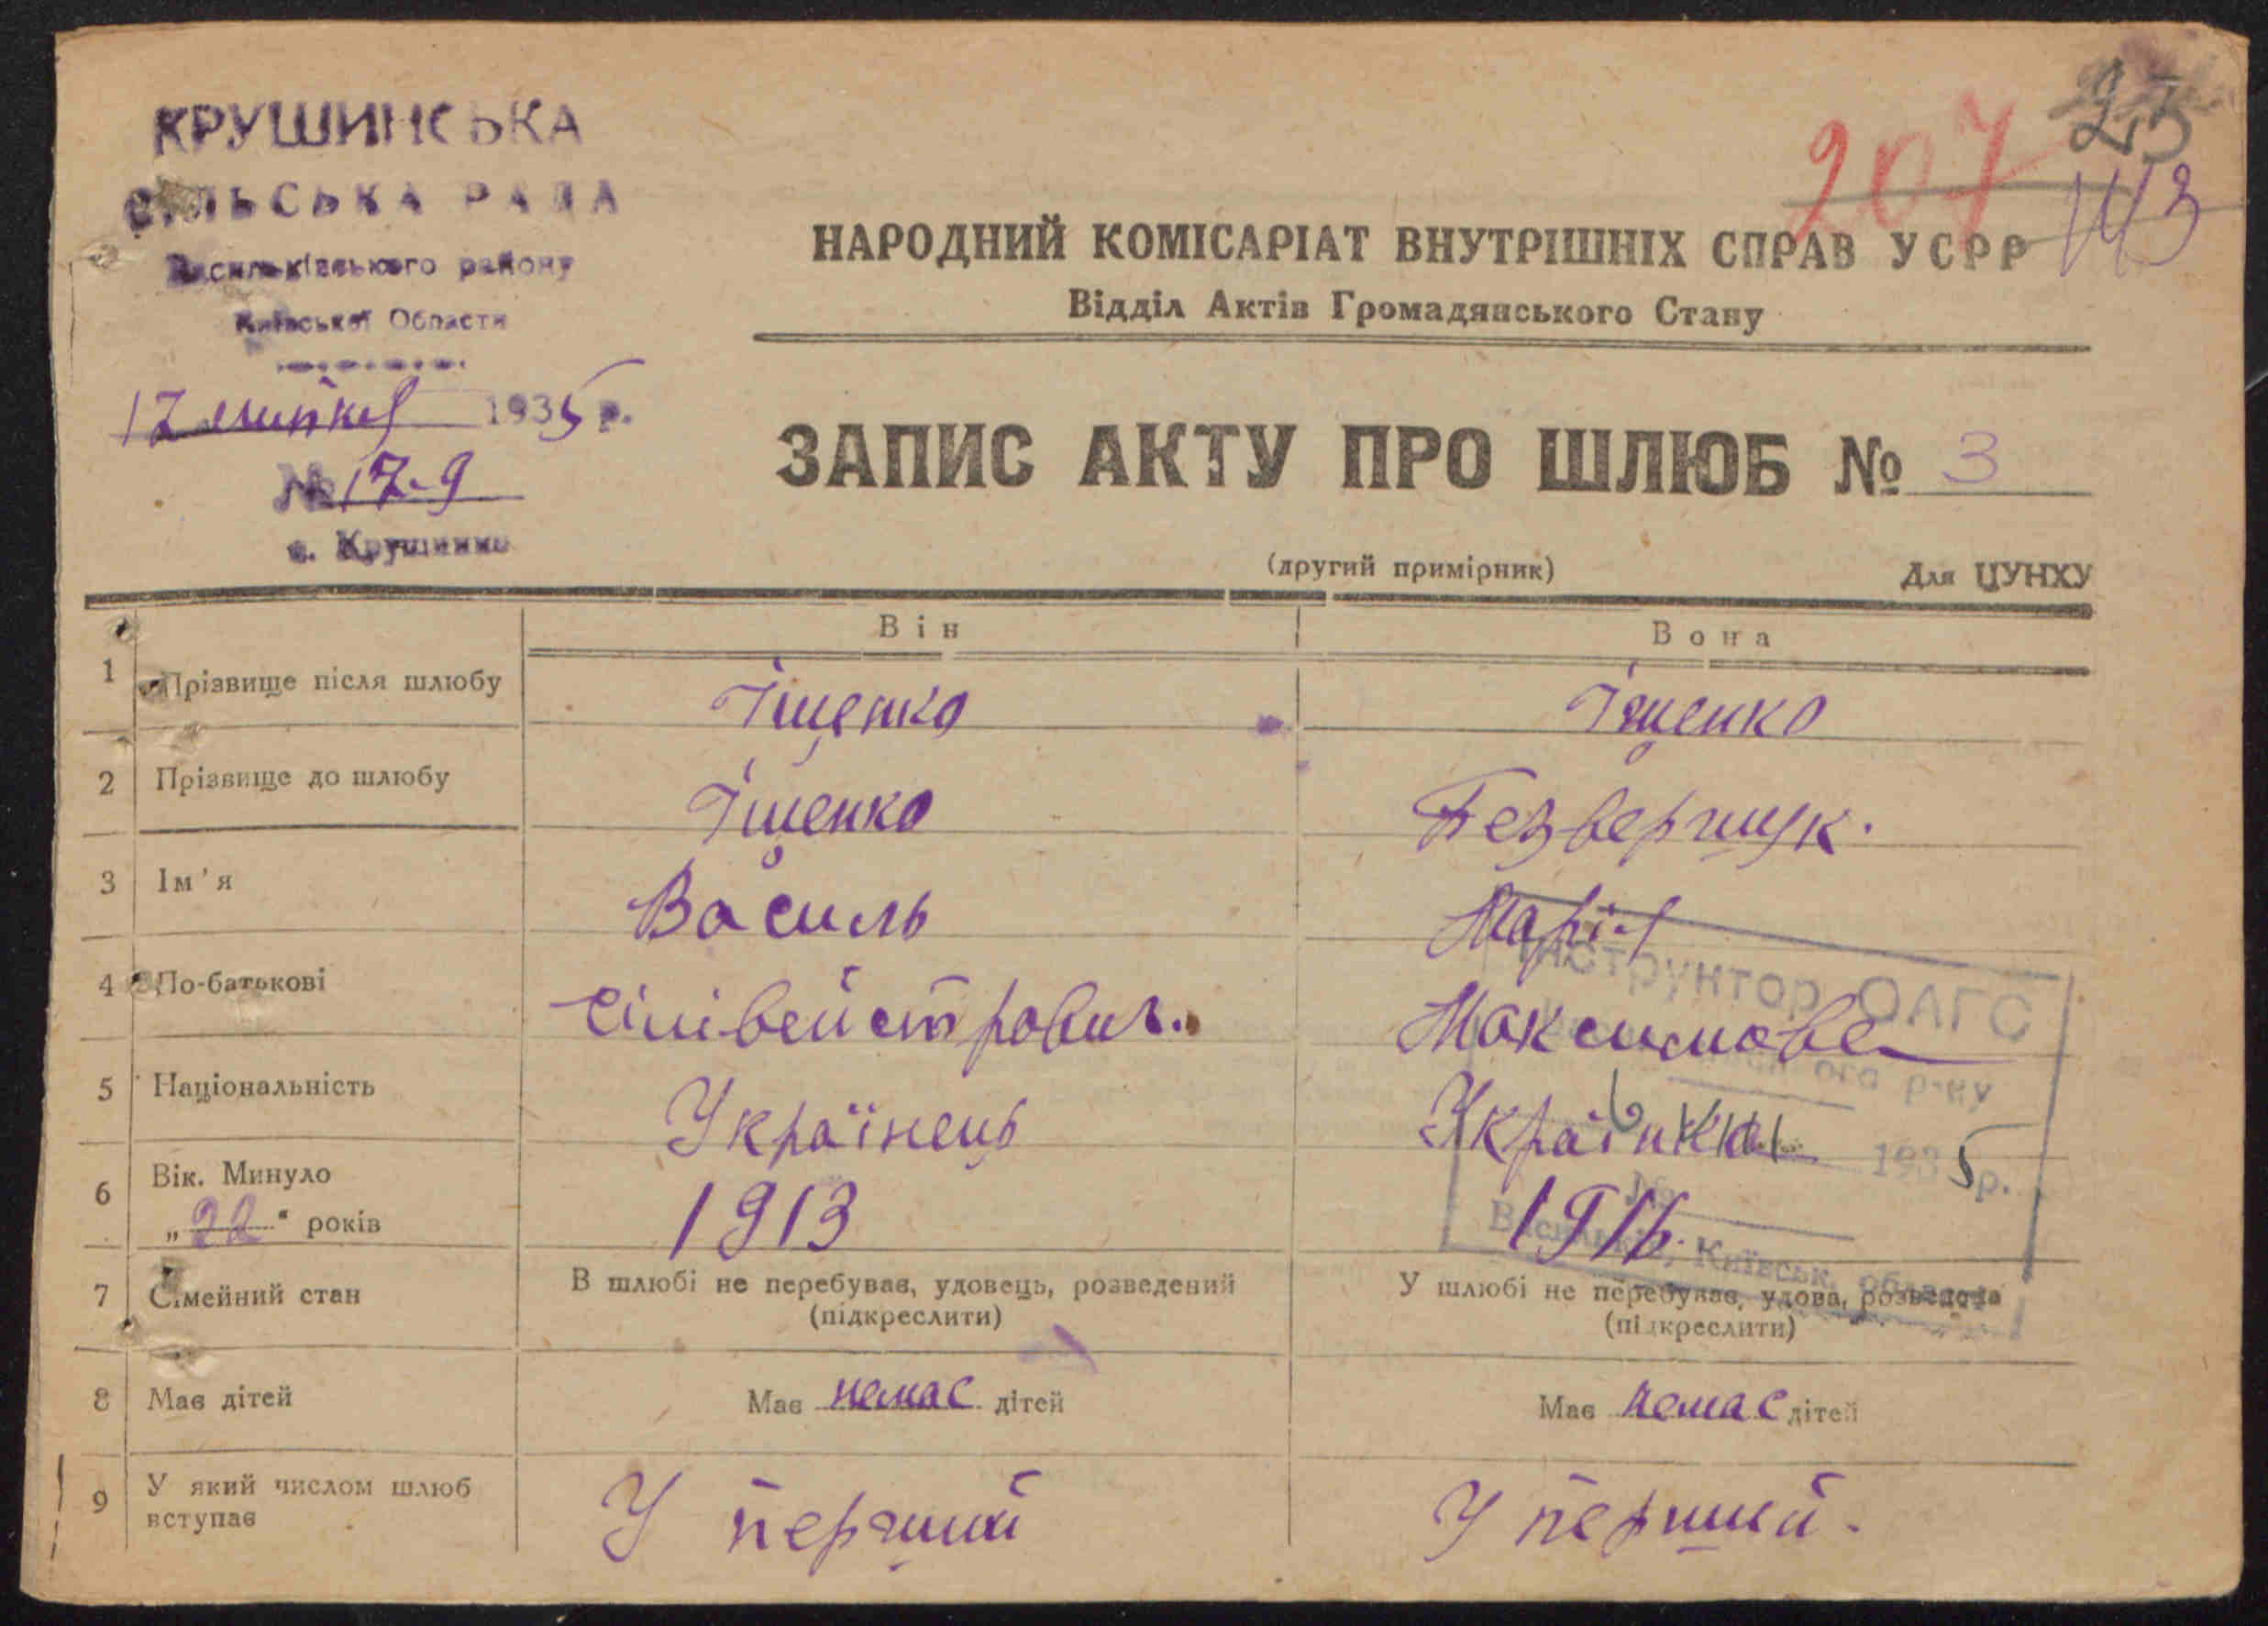 КРУШИНСЬКА
СІЛЬСЬКА РАДА
Васильківського району
Київської Области
17 липня 1935 р.
№ 17-9
с. Крушинка
207
25
143
НАРОДНИЙ КОМІСАРІАТ ВНУТРІШНІХ СПРАВ УСРР
Відділ Актів Громадянського Стану
ЗАПИС АКТУ ПРО ШЛЮБ № 3
(другий примірник)
Для ЦУНХУ
Він
Вона
1 Прізвище після шлюбу Іщенко Іщенко
2 Прізвище до шлюбу Іщенко Безвершук.
3 Ім'я Василь Марія
4 По-батькові Сілівейстрович. Максимове
5 Національність Українець Українка
6 Вік. Минуло „22“ років 1913 1916.
7 Сімейний стан В шлюбі не перебував, удовець, розведений (підкреслити) У шлюбі не перебувае, удова, розведена (підкреслити)
8 Має дітей Має немає дітей Має немає дітей
9 У який числом шлюб вступає У перший У перший.
Інструктор ОАГС
ого р-ну
1935 р.
№
Васильків, Київськ. области